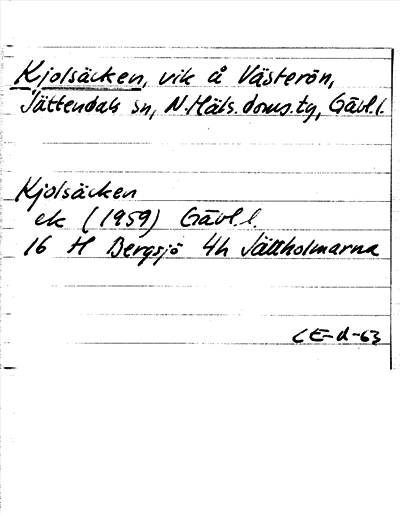 Kjolsäcken, vik å Västerön,
Jättendals sn, N.Häls.doms.ty, Gävl.l.
Kjolsäcken
ek (1959) Gävl.l.
16 H Bergsjö 4h Jällholmarna
CE-d-63